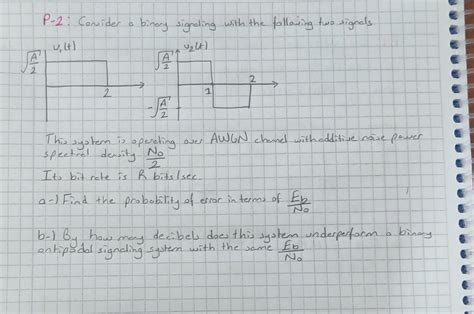 P-2: Consider a binary signaling with the following two signals.
u₁(t)
u₂(t)
√A/2
√A/2
2
1
2
-√A/2
This system is operating over AWGN channel with additive noise power
spectral density N₀/2
Its bit rate is R bits/sec
a-) Find the probability of error in terms of Eb/N₀
b-) By how many decibels does this system underperform a binary
antipodal signaling system with the same Eb/N₀